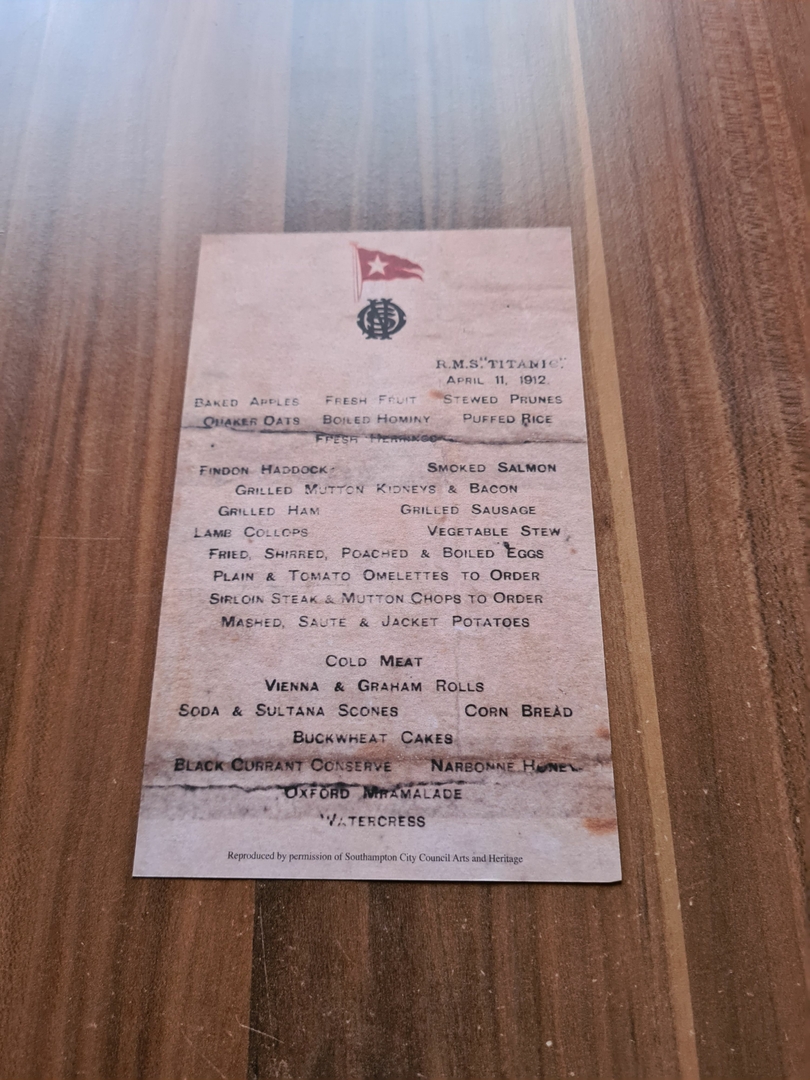 R.M.S. "TITANIC."
APRIL 11, 1912.
BAKED APPLES FRESH FRUIT STEWED PRUNES
QUAKER OATS BOILED HOMINY PUFFED RICE
FRESH HERRINGS
FINDON HADDOCK SMOKED SALMON
GRILLED MUTTON KIDNEYS & BACON
GRILLED HAM GRILLED SAUSAGE
LAMB COLLOPS VEGETABLE STEW
FRIED, SHIRRED, POACHED & BOILED EGGS
PLAIN & TOMATO OMELETTES TO ORDER
SIRLOIN STEAK & MUTTON CHOPS TO ORDER
MASHED, SAUTE & JACKET POTATOES
COLD MEAT
VIENNA & GRAHAM ROLLS
SODA & SULTANA SCONES CORN BREAD
BUCKWHEAT CAKES
BLACK CURRANT CONSERVE NARBONNE HONEY
OXFORD MRAMALADE
WATERCRESS
Reproduced by permission of Southampton City Council Arts and Heritage